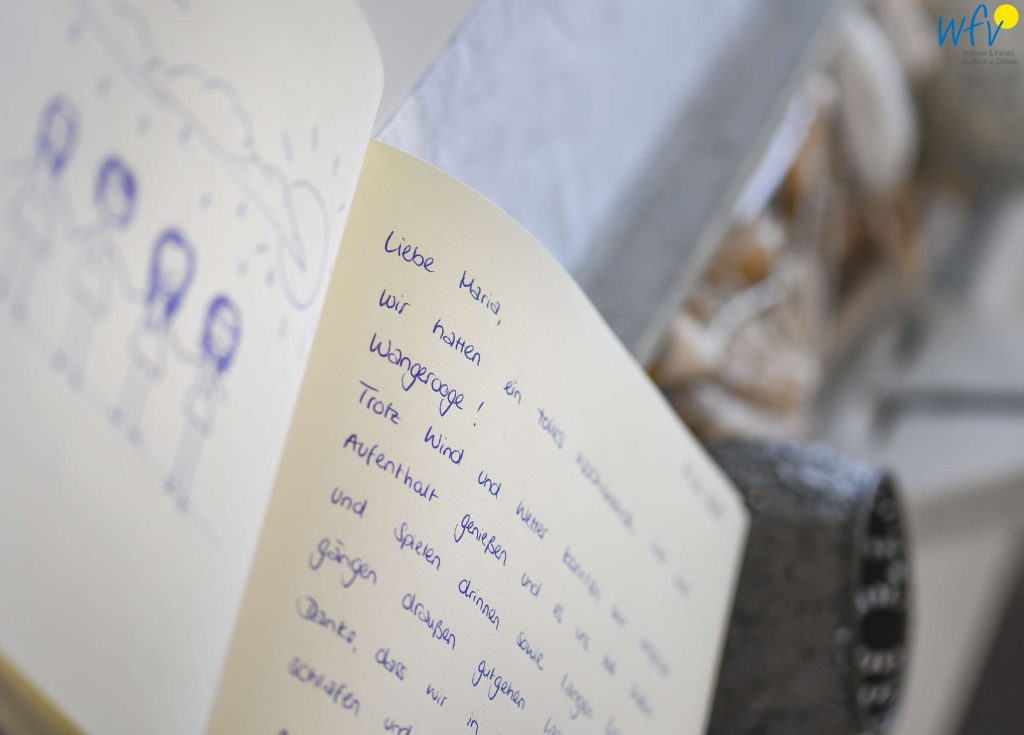 wfv
Wohnen & Ferien
an Nord- u. Ostsee
Liebe Maria,
wir hatten ein tolles
Wangerooge!
Trotz Wind und Wetter konnten wir unseren
Aufenthalt genießen und es uns
und Spielen drinnen sowie langen
gängen draußen gutgehen
Danke, dass wir in
schlafen und